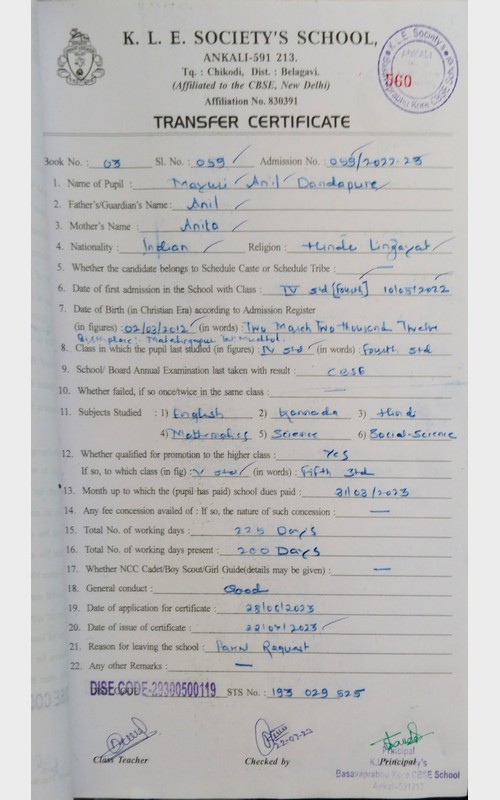 K. L. E. SOCIETY'S SCHOOL,
ANKALI-591 213.
Tq. : Chikodi, Dist. : Belagavi.
(Affiliated to the CBSE, New Delhi)
Affiliation No. 830391
560
TRANSFER CERTIFICATE
Book No. : 03 Sl. No. : 059 Admission No. : 059/2022-23
1. Name of Pupil : Mayuri Anil Dandapure
2. Father's/Guardian's Name : Anil
3. Mother's Name : Anita
4. Nationality : Indian Religion : Hindu Lingayat
5. Whether the candidate belongs to Schedule Caste or Schedule Tribe : —
6. Date of first admission in the School with Class : IV std [fourth] 10/05/2022
7. Date of Birth (in Christian Era) according to Admission Register
(in figures) : 02/03/2012 (in words) : Two March Two thousand Twelve
Birth place:-
8. Class in which the pupil last studied (in figures) : IV std (in words) : Fourth std
9. School/ Board Annual Examination last taken with result : CBSE
10. Whether failed, if so once/twice in the same class : —
11. Subjects Studied : 1) English 2) Kannada 3) Hindi
4) Mathematics 5) Science 6) Social-Science
12. Whether qualified for promotion to the higher class : Yes
If so, to which class (in fig) : V std (in words) : Fifth Std
13. Month up to which the (pupil has paid) school dues paid : 31/03/2023
14. Any fee concession availed of : If so, the nature of such concession : —
15. Total No. of working days : 225 Days
16. Total No. of working days present : 200 Days
17. Whether NCC Cadet/Boy Scout/Girl Guide(details may be given) : —
18. General conduct : Good
19. Date of application for certificate :
20. Date of issue of certificate :
21. Reason for leaving the school : Request
22. Any other Remarks : —
DISE CODE-29300500119 STS No. : 193 029 525
22-07-23
Class Teacher Checked by Principal
Principal
Basavaprabhu Kore CBSE School
Ankali-591213